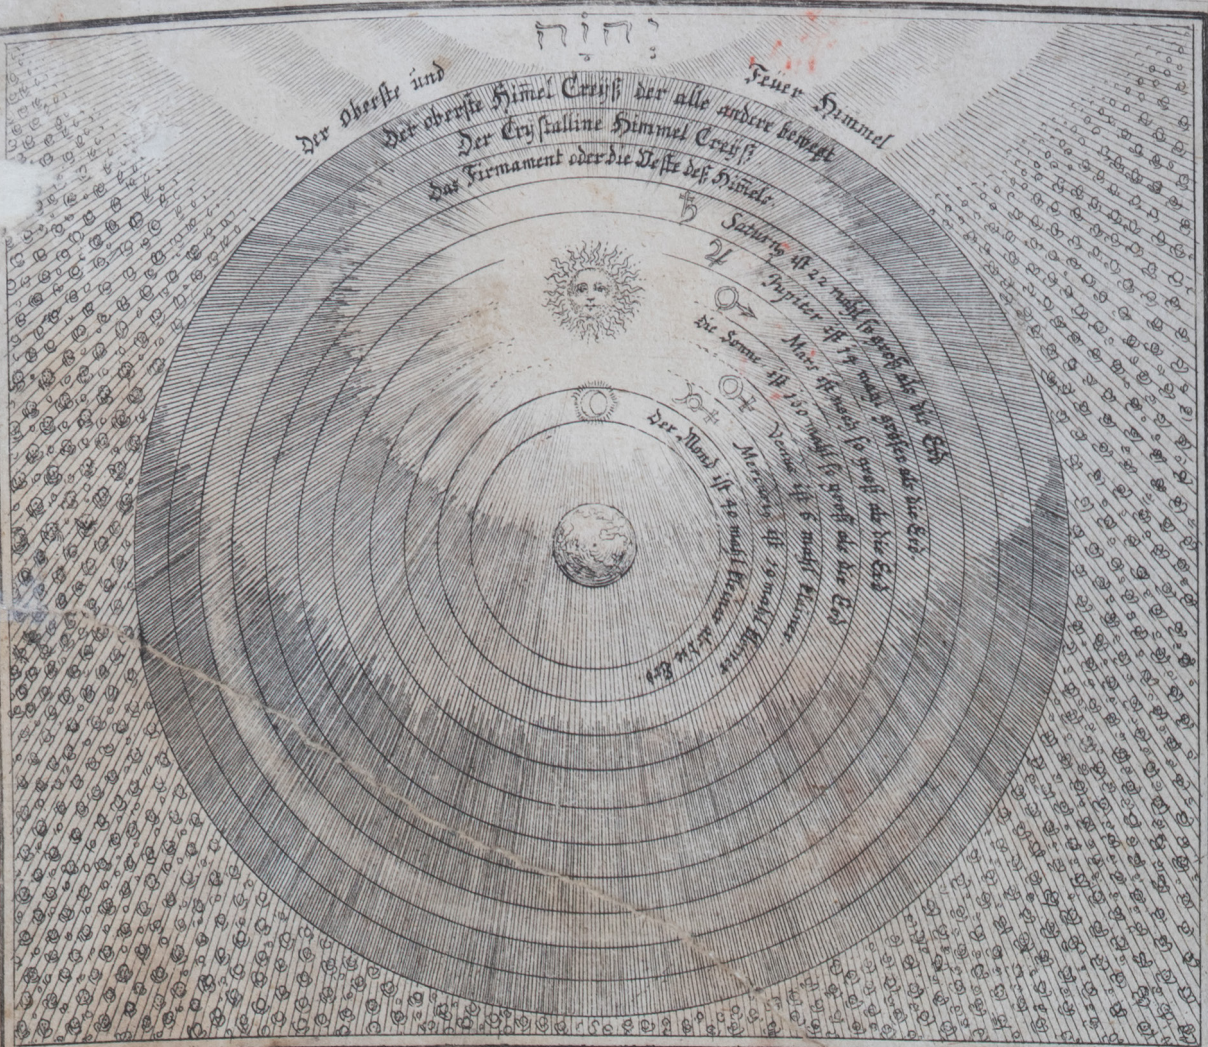 יְהוָֹה
Der Oberste und Feüer Himmel
Der oberste Him̄el Creÿß der alle andere bewegt
Der Crystalline Himmel Creÿß
Das Firmament oder die Veste deß Him̄els
♄ Saturnꝯ ist 22 mahl so groß als die Erd
♃ Jupiter ist 14 mahl größer als die Erd
♂ Mars ist noch so groß als die Erd
Die Sonne ist 160 mahl so groß als die Erd
♀ Venus ist 6 mahl kleiner
☿ Mercuriꝯ ist 19 mahl kleiner
Der Mond ist 40 mahl kleiner als die Erd